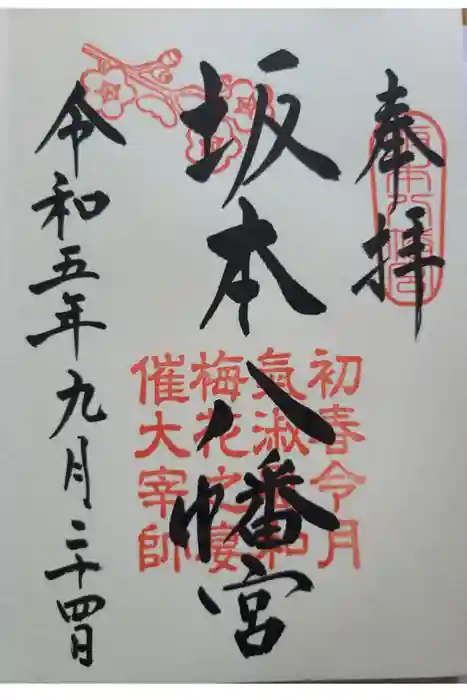 奉拝
坂本八幡宮
令和五年九月二十四日
初春令月
氣淑風和
梅花之宴
催大宰師